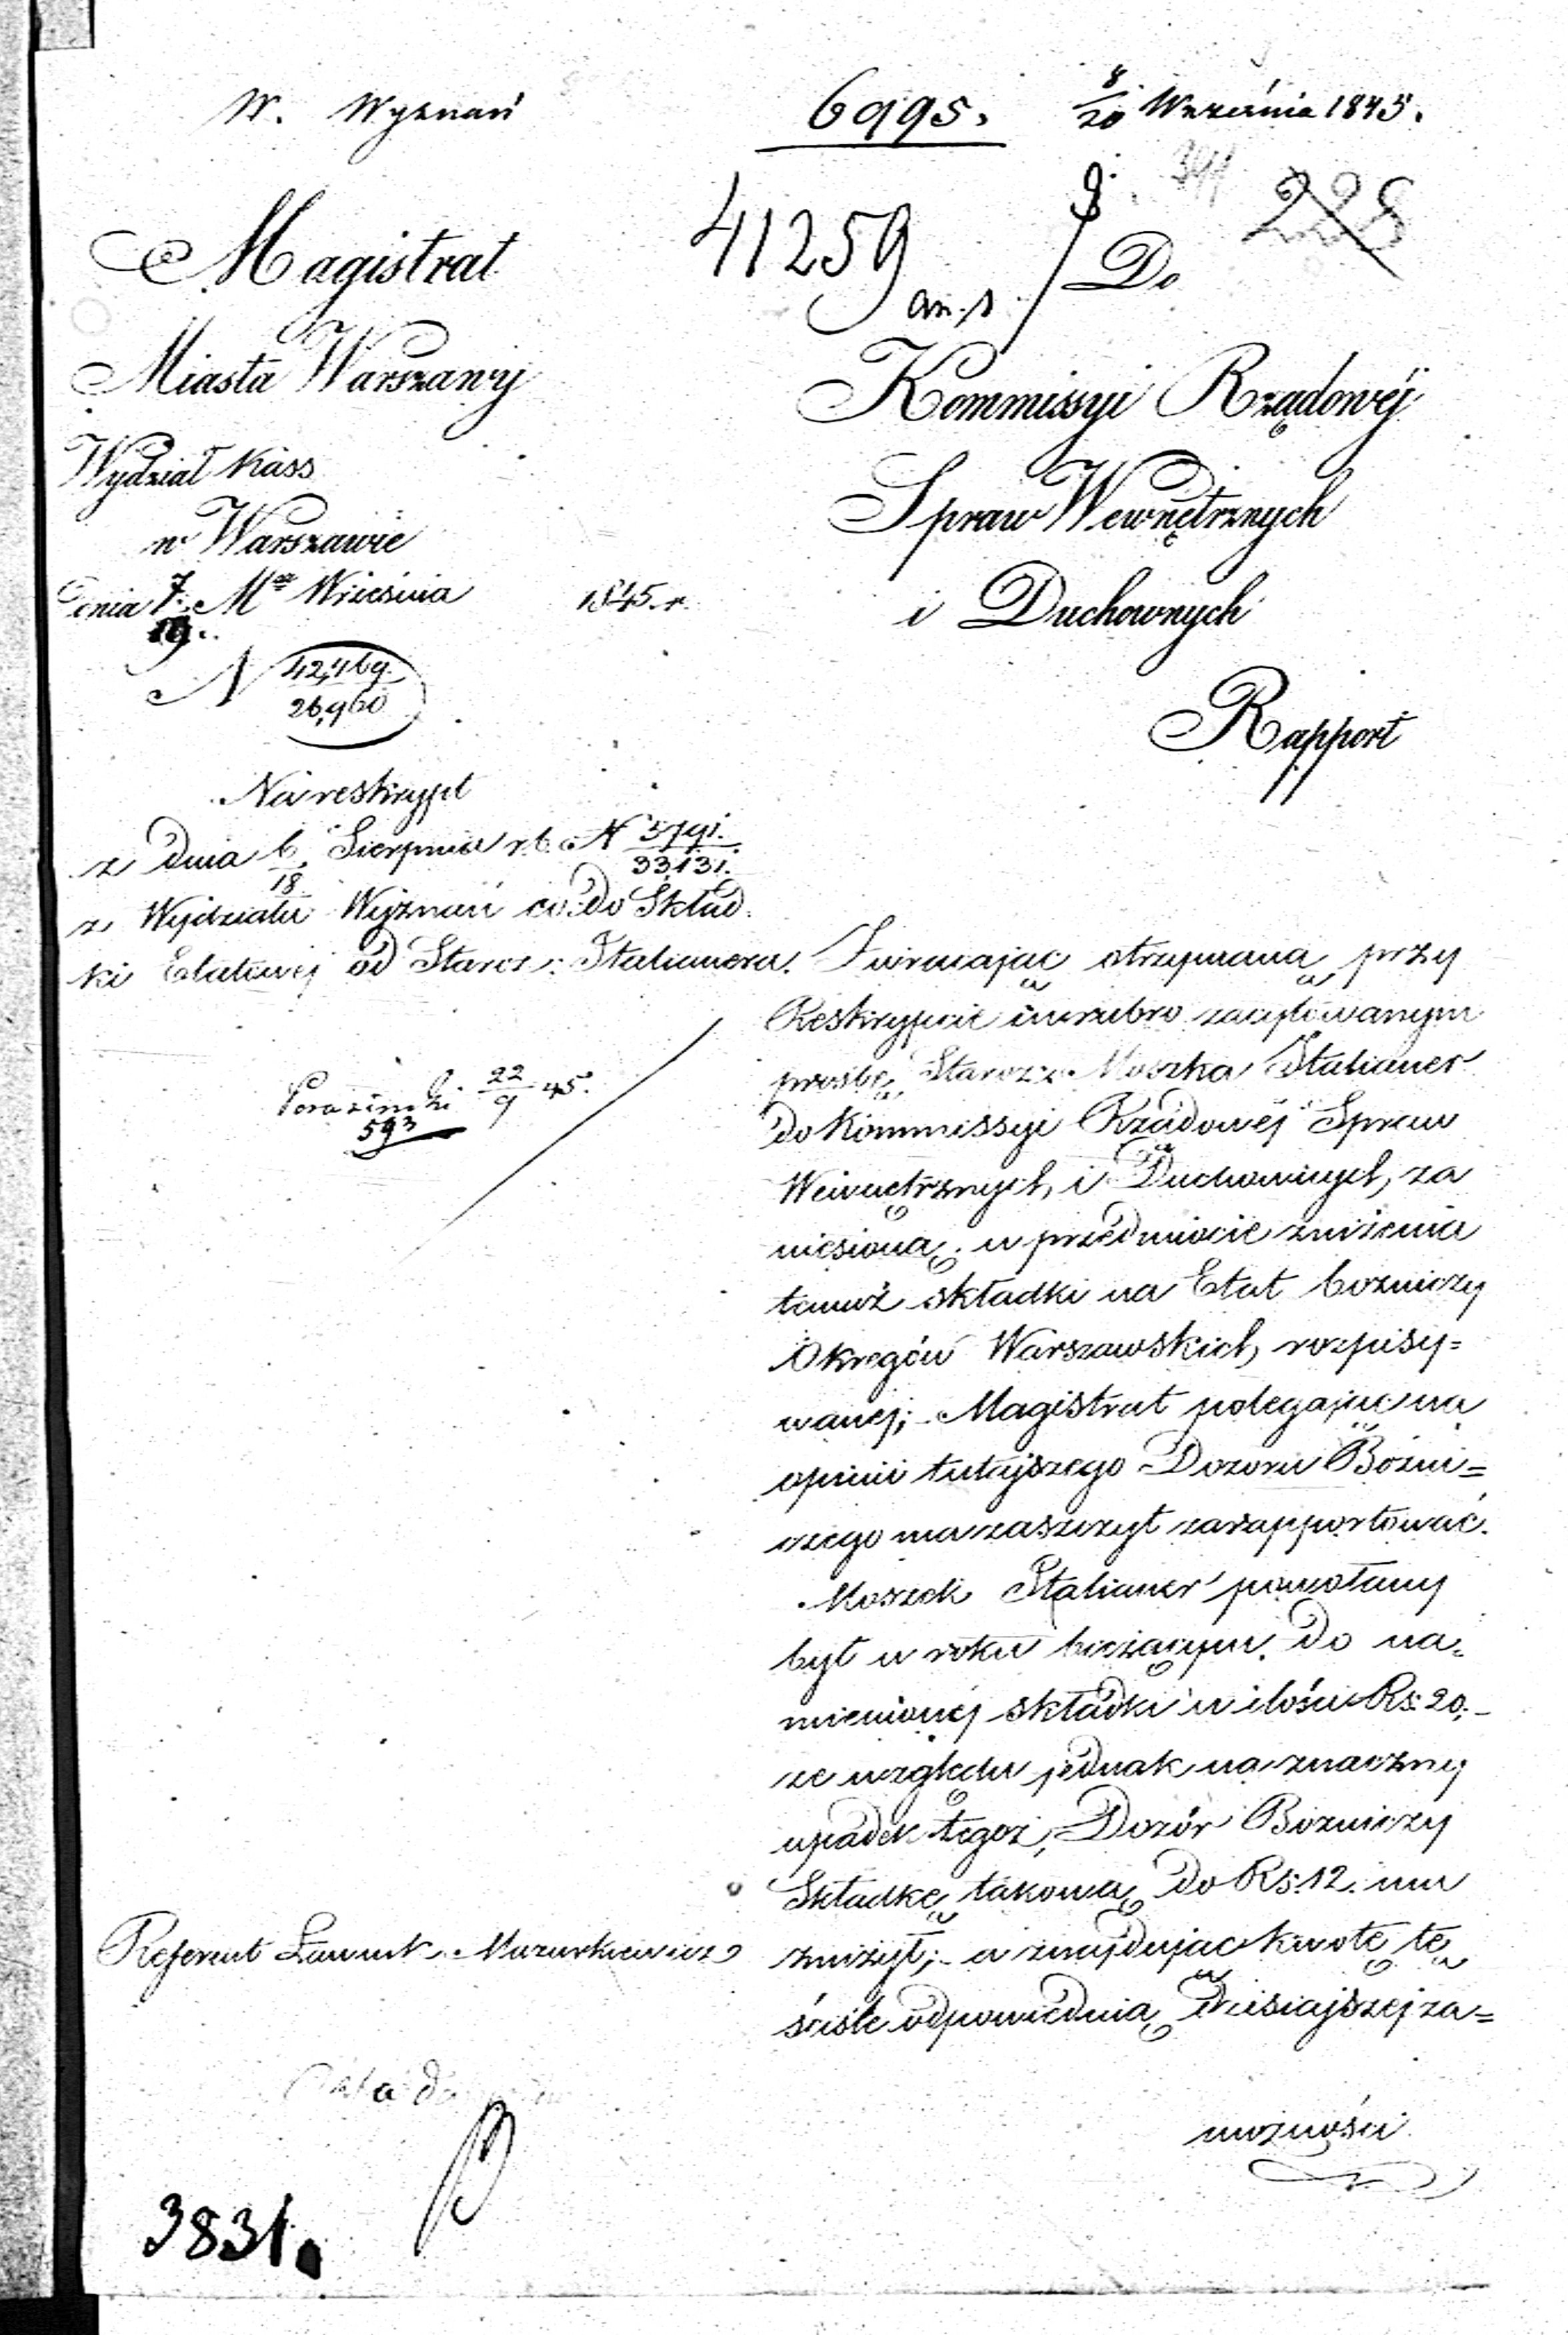 W. Wyznań
6995.
8/20 Września 1845.
41259
228
Magistrat
Miasta Warszawy
Wydział Kass
w Warszawie
Dnia 7/19 Mca Września 1845 r.
N 42,469/26,960
Do
Kommissyi Rządowéj
Spraw Wewnętrznych
i Duchownych
Rapport
Na reskrypt
z Dnia 6/18 Sierpnia r.b. N 5791/33,131.
z Wydziału Wyznań co do Skład
ki Etatowej od Staroz: Italianera.
22/9 45.
593
Zwracając otrzymaną przy
Reskrypcie in rubro zacytowanym
prosbę Staroz: Moszka Italianer
do Kommissyi Rządowéj Spraw
Wewnętrznych i Duchownych, za
niesioną w przedmiocie zniżenia
temuż składki na Etat bożniczy
Okręgów Warszawskich rozpisy=
wanej; Magistrat polegając na
opinii tutejszego Dozoru Bożni=
czego ma zaszczyt zarapportować.
Moszek Italianer powołany
był w roku bieżącym do na=
mienionéj składki w ilości Rs: 20,
ze względu jednak na znaczny
upadek tegoż, Dozór Bożniczy
Składkę takową do Rs: 12. mu
zniżył; a znajdując kwotę tę
ściśle odpowiednią dzisiajszej za=
możności
Referent Ławnik Mazurkiewicz
3831.